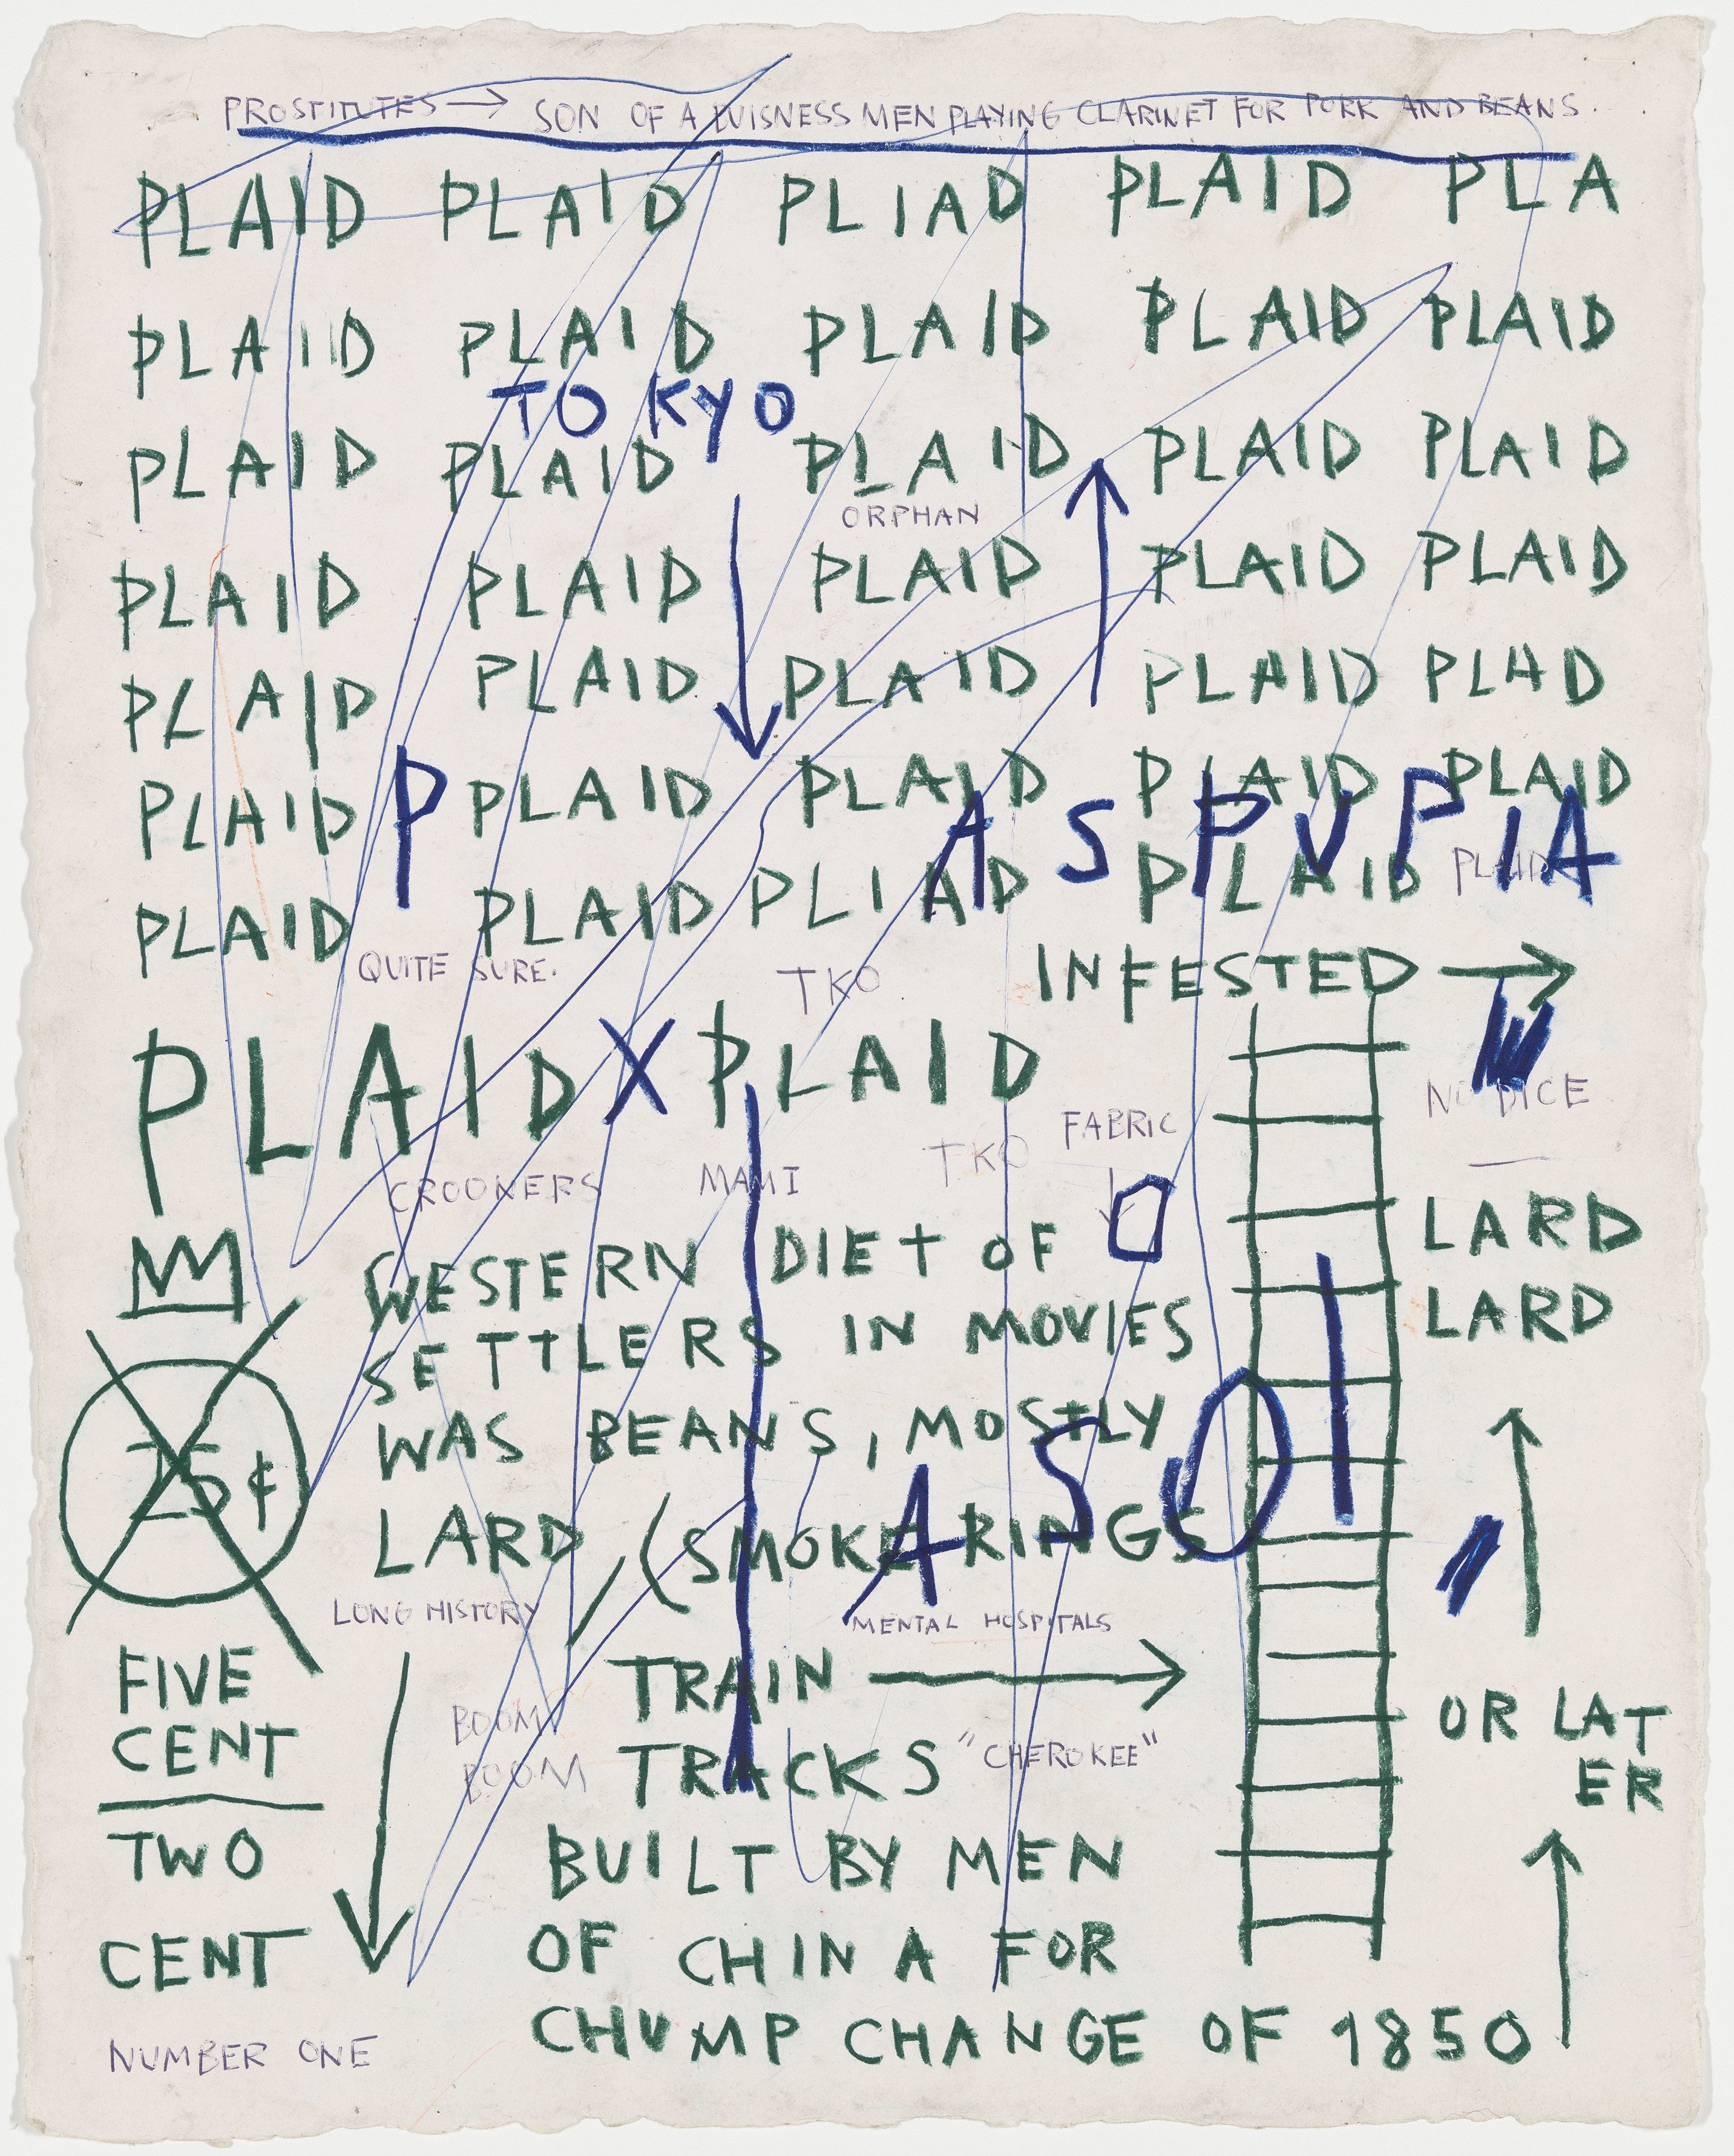 PROSTITUTES → SON OF A BUISNESS MEN PLAYING CLARINET FOR PORK AND BEANS.
PLAID PLAID PLIAD PLAID PLA
PLAID PLAID PLAID PLAID PLAID
TOKYO
PLAID PLAID PLAID PLAID PLAID
ORPHAN
PLAID PLAID PLAID PLAID PLAID
PLAID PLAID PLAID PLAID PLAD
PLAID PLAID PLAID PLAID PLAID
P A S P U P I A
PLAID PLAID PLIAD PLAID PLAID
QUITE SURE. TKO INFESTED →
PLAID X PLAID
NO DICE
FABRIC
TKO
CROONERS MAMI
LARD
LARD
WESTERN DIET OF
SETTLERS IN MOVIES
WAS BEANS, MOSTLY
25¢
I A S O I
LARD (SMOKE RINGS
LONG HISTORY MENTAL HOSPITALS
FIVE
CENT
TRAIN →
BOOM
BOOM
TRACKS "CHEROKEE"
OR LAT
ER
TWO
CENT
BUILT BY MEN
OF CHINA FOR
CHUMP CHANGE OF 1850
NUMBER ONE